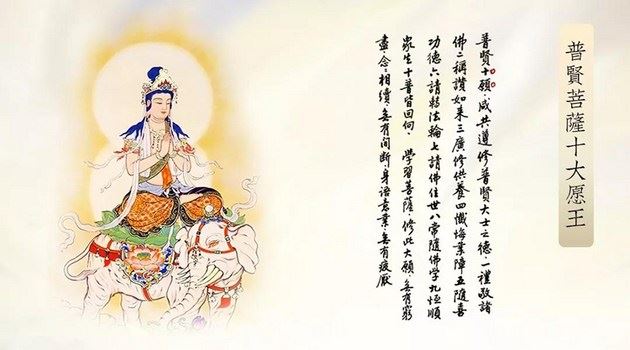 普賢菩薩十大愿王
普賢十願。咸共遵修普賢大士之德。一禮敬諸
佛二稱讚如来三廣修供養四懺悔業障五隨喜
功德六請轉法輪七請佛住世八常隨佛学九恆順
衆生十普皆回向。學習菩薩。修此大願。無有窮
盡。念々相續。無有間断。身語意業。無有疲厭